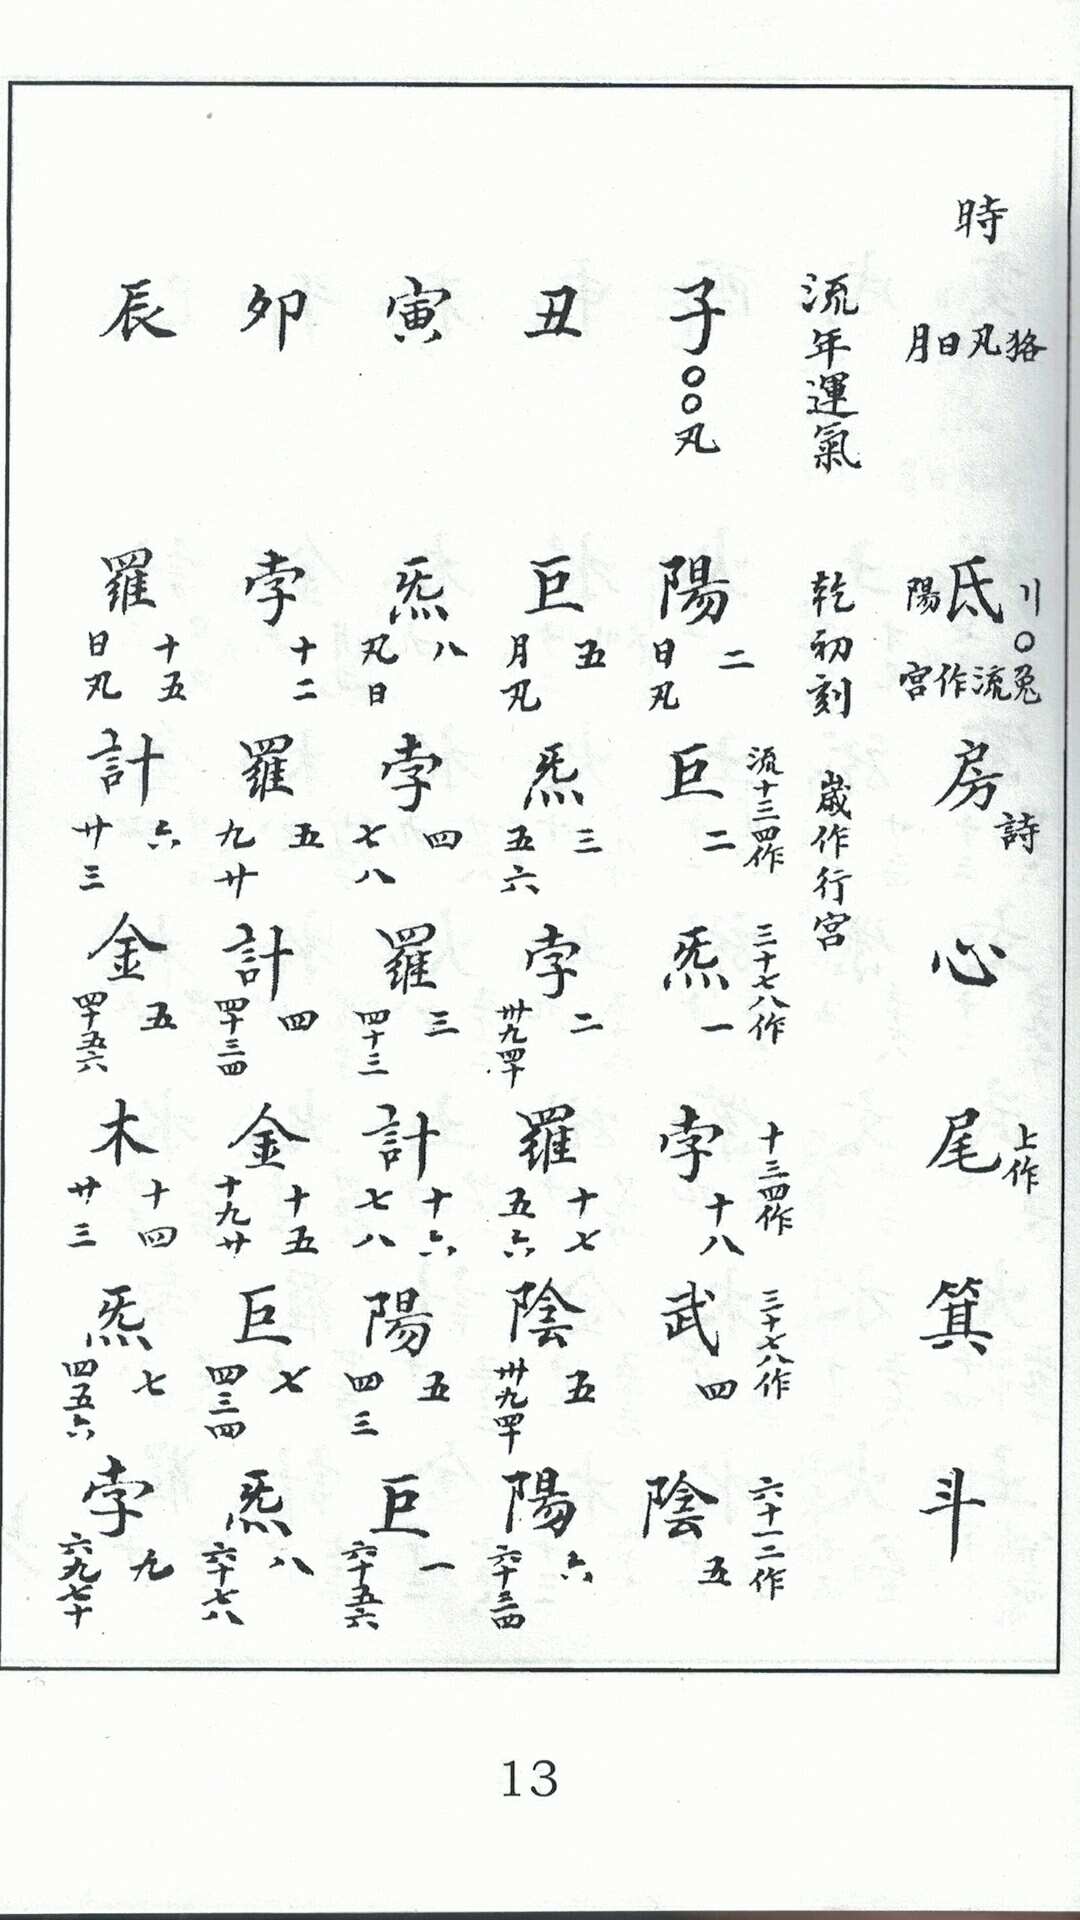 時 月日凡狢 陽氐川〇兔 宮作流 房 詩 心 尾 上作 箕 斗
流年運氣 乾初刻 歲作行宮
子〇〇凡 陽 二 日凡 巨 二 流十三四作 炁 一 三十七八作 孛 十八 十三四作 武 四 三十七八作 陰 五 六十一二作
丑 巨 五 月凡 炁 三 五六 孛 二 卅九四十 羅 十七 五六 陰 五 卅九四十 陽 六 六十三四
寅 炁 八 凡日 孛 四 七八 羅 三 四十三 計 十六 七八 陽 五 四三 巨 一 六十五六
卯 孛 十二 羅 五 九廿 計 四 四十三四 金 十五 十九廿 巨 七 四三四 炁 八 六十七八
辰 羅 十五 日凡 計 六 廿三 金 五 四十五六 木 十四 廿三 炁 七 四五六 孛 九 六九七十
13